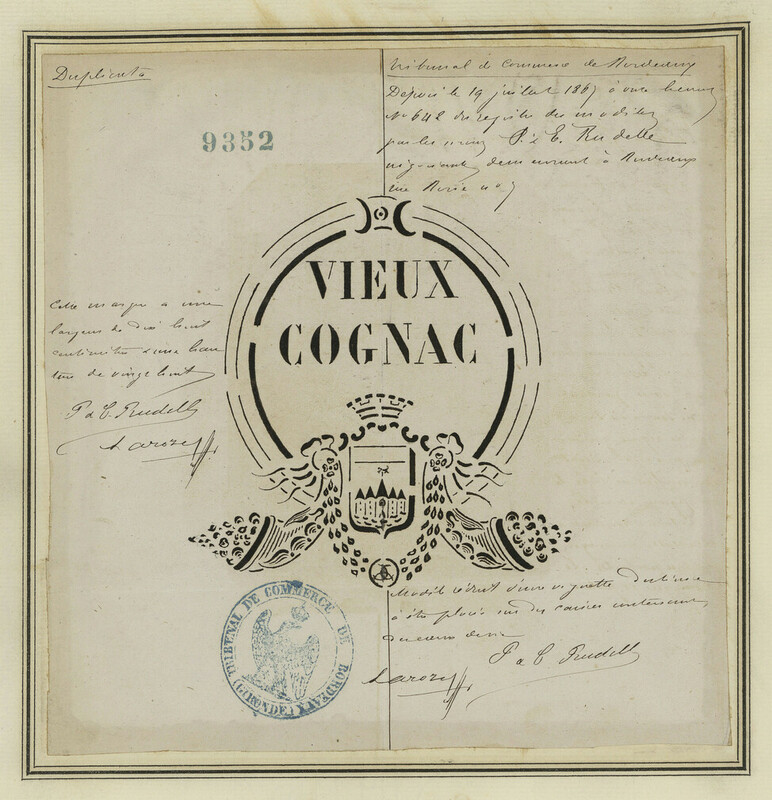 Duplicata
Tribunal de Commerce de Bordeaux
Déposé le 19 juillet 186 à onze heures
No 642 du registre des modèles
par les sieurs P. & E. Rudelle
négociants demeurant à Bordeaux
rue
9352
VIEUX
COGNAC
Cette marque a une
largeur de dix huit
centimètres d'une hau
teur de vingt huit
P & E. Rudelle
Modèle réduit d'une vignette destinée
à être placée sur des caisses contenant
P & E. Rudelle
TRIBUNAL DE COMMERCE DE BORDEAUX
(GIRONDE)